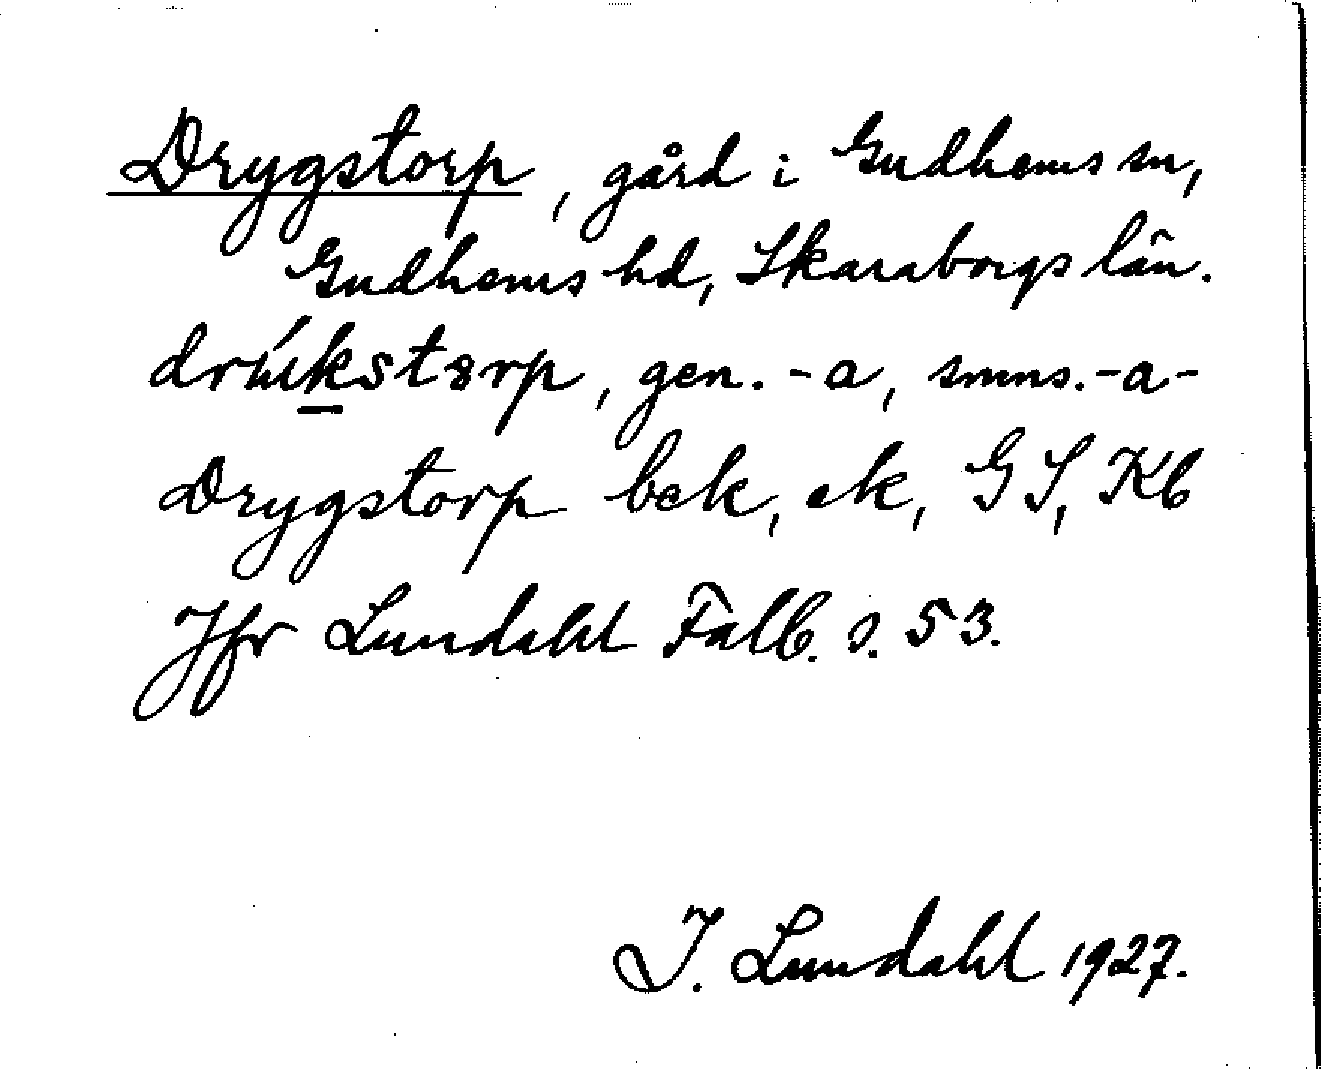 Drygstorp, gård i Gudhems sn,
Gudhems hd, Skaraborgs län.
gen. -a, smns. -a-
Drygstorp bek, ek, GS, Kb
Jfr Lundahl Falb. s. 53.
I. Lundahl 1927.